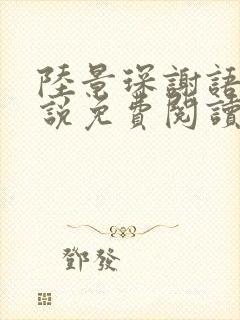 陸景琛謝語
說免費閱讀
鄧發